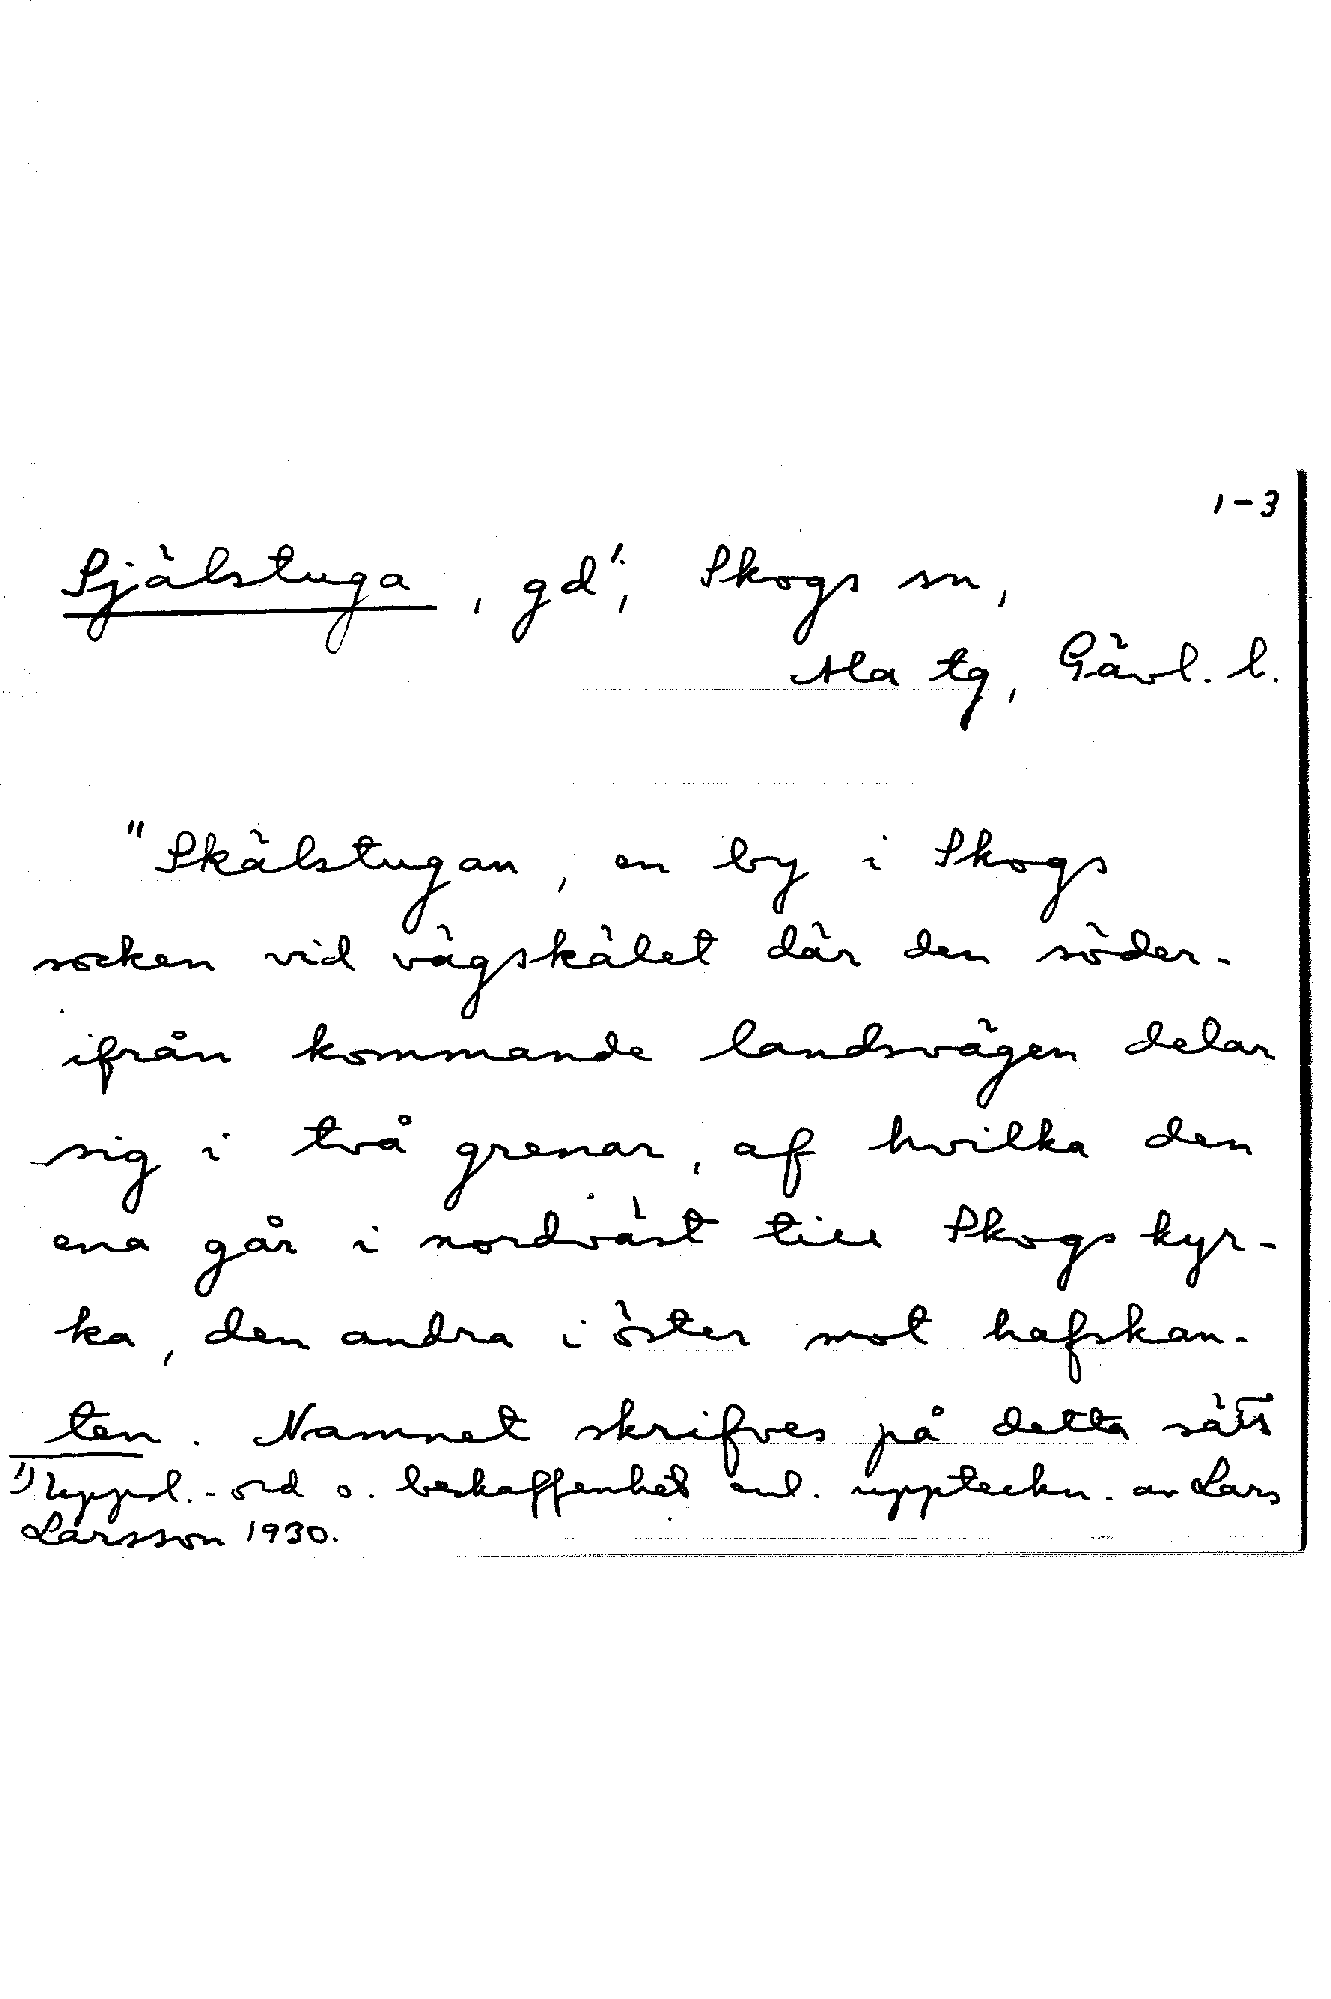 1-3
Själstuga, gd¹⁾, Skogs sn,
Ala tg, Gävl. l.
"Skälstugan, en by i Skogs
socken vid vägskälet där den söder-
ifrån kommande landsvägen delar
sig i två grenar, af hvilka den
ena går i nordväst till Skogs kyr-
ka, den andra i öster mot hafskan-
ten. Namnet skrifves på detta sätt
¹⁾ Uppsl.-ord o. beskaffenhet enl. uppteckn. av Lars
Larsson 1930.